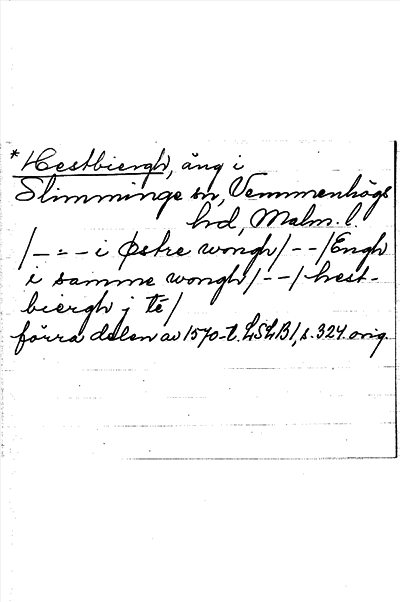 *Hestbiergh, äng i
Slimminge sn, Vemmenhögs
hd, Malm. l.
/-:- i Østre wongh/--/Engh
i samme wongh/--/hest-
biergh j te/
förra delen av 1570-t. LSLB1, s. 324 orig.